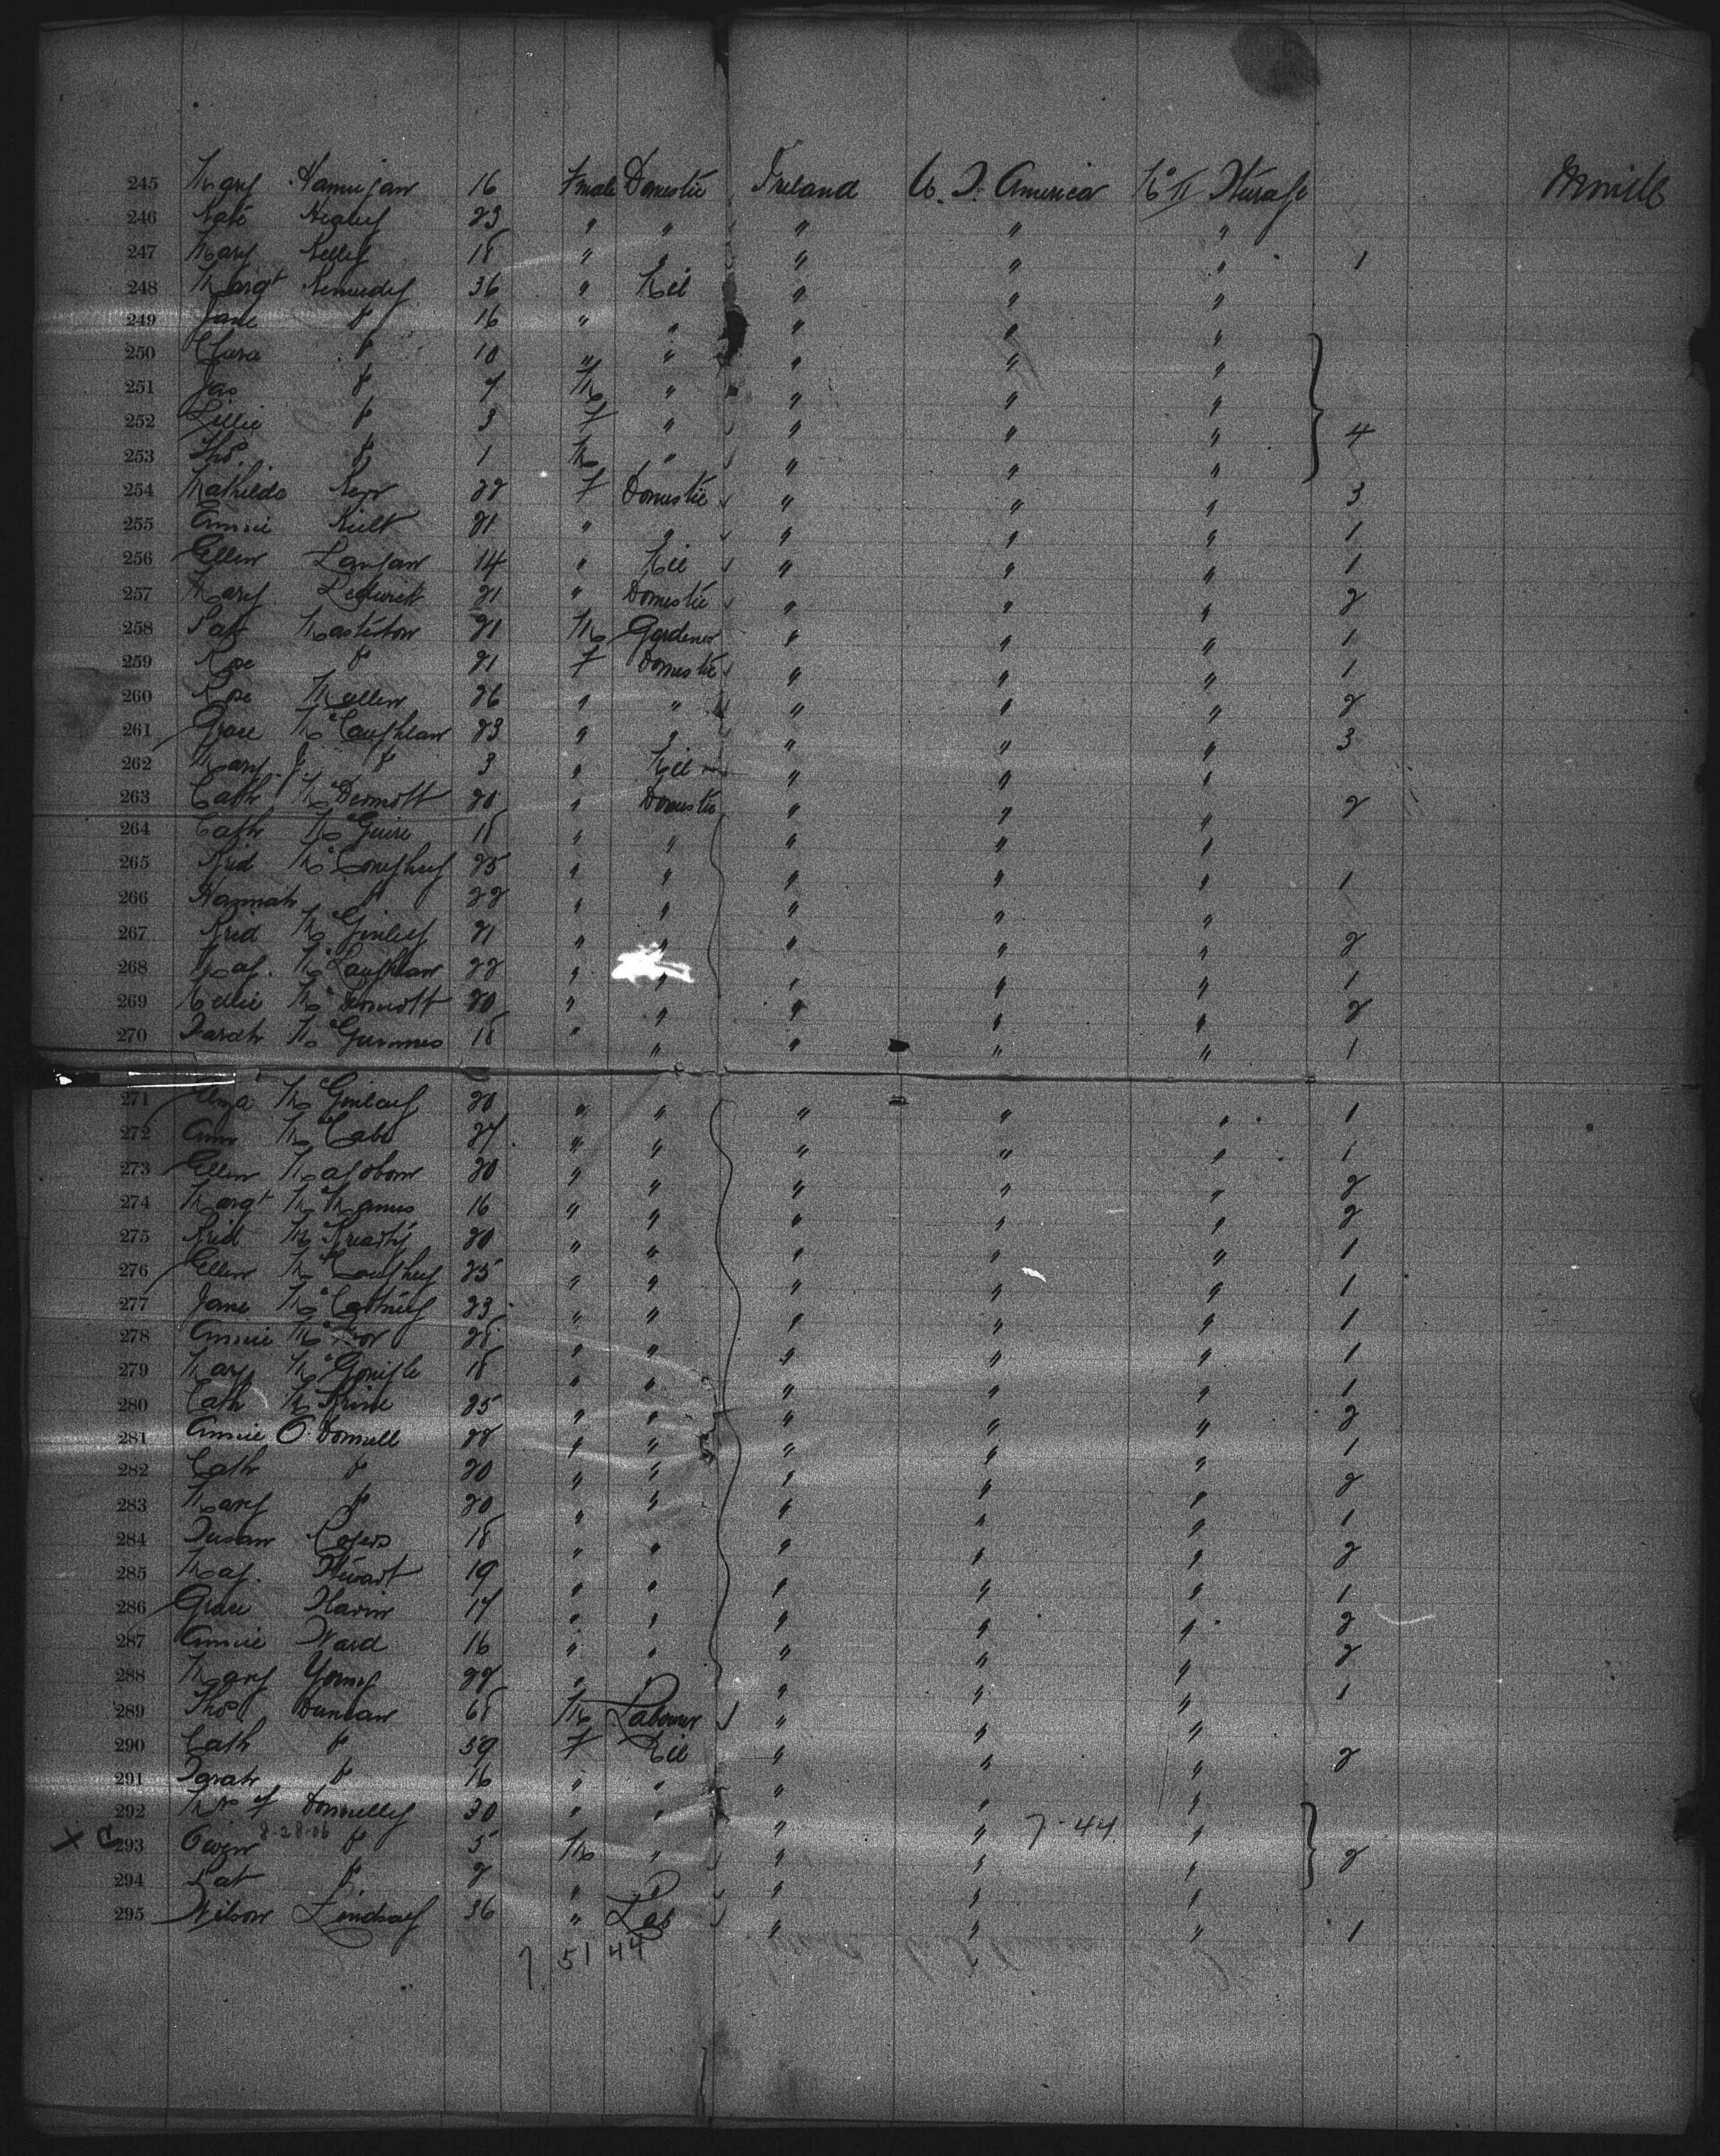 245 Mary Hannigan 16 Female Domestic Ireland U. S. America No II Steerage
246 Kate Healey 23 " " " " "
247 Mary Kelley 18 " " " " " 1
248 Margt Kennedy 36 " Nil " " "
249 Jane " 16 " " " " "
250 Clara " 10 " " " " "
251 Jas " 7 M " " " "
252 Lillie " 3 F " " " " 4
253 Thos. " 1 M " " " "
254 Mathilda Kerr 22 F Domestic " " " 3
255 Annie 21 " " " " " 1
256 Ellen Langan 14 " Nil " " " 1
257 Mary 21 " Domestic " " " 2
258 Pat Masterson 21 M Gardener " " " 1
259 Rose " 21 F Domestic " " " 1
260 Rose Mullen 26 " " " " " 2
261 Grace McLaughlan 23 " " " " " 3
262 Mary J. " 3 " Nil " " "
263 Cath McDermott 20 " Domestic " " " 2
264 Cath McGuire 18 " " " " "
265 Brid McConeghey 25 " " " " " 1
266 Hannah " 22 " " " " "
267 Brid McGinley 21 " " " " " 2
268 Mag. McLaughlan 22 " " " " " 1
269 Nellie McDermott 20 " " " " " 2
270 Sarah McGuinnes 18 " " " " " 1
271 Eliza McGinley 20 " " " " " 1
272 Ann McCabe 27 " " " " " 1
273 Ellen 20 " " " " " 2
274 Margt McManus 16 " " " " " 2
275 Brid McBrearty 20 " " " " " 1
276 Ellen McCaughey 25 " " " " " 1
277 Jane McCartney 23 " " " " " 1
278 Annie 28 " " " " " 1
279 Mary McGonigle 18 " " " " " 1
280 Cath McBride 25 " " " " " 2
281 Annie O'Donnell 22 " " " " " 1
282 Cath " 20 " " " " " 2
283 Mary " 20 " " " " " 1
284 Susan Rogers 18 " " " " " 2
285 Mag. Stewart 19 " " " " " 1
286 Grace Slavin 17 " " " " " 2
287 Annie Ward 16 " " " " " 2
288 Mary Young 22 " " " " " 1
289 Thos. Duncan 68 M Labourer " " "
290 Cath " 59 F Nil " " " 2
291 Sarah " 16 " " " " "
292 Mrs Donnelly 30 " " " " "
X C 293 Owen 8-28-06 " 5 M " " " 7-44 " 2
294 Pat " 2 " " " " "
295 Wilson Lindsay 36 " Lab " " " 1
7 51 44